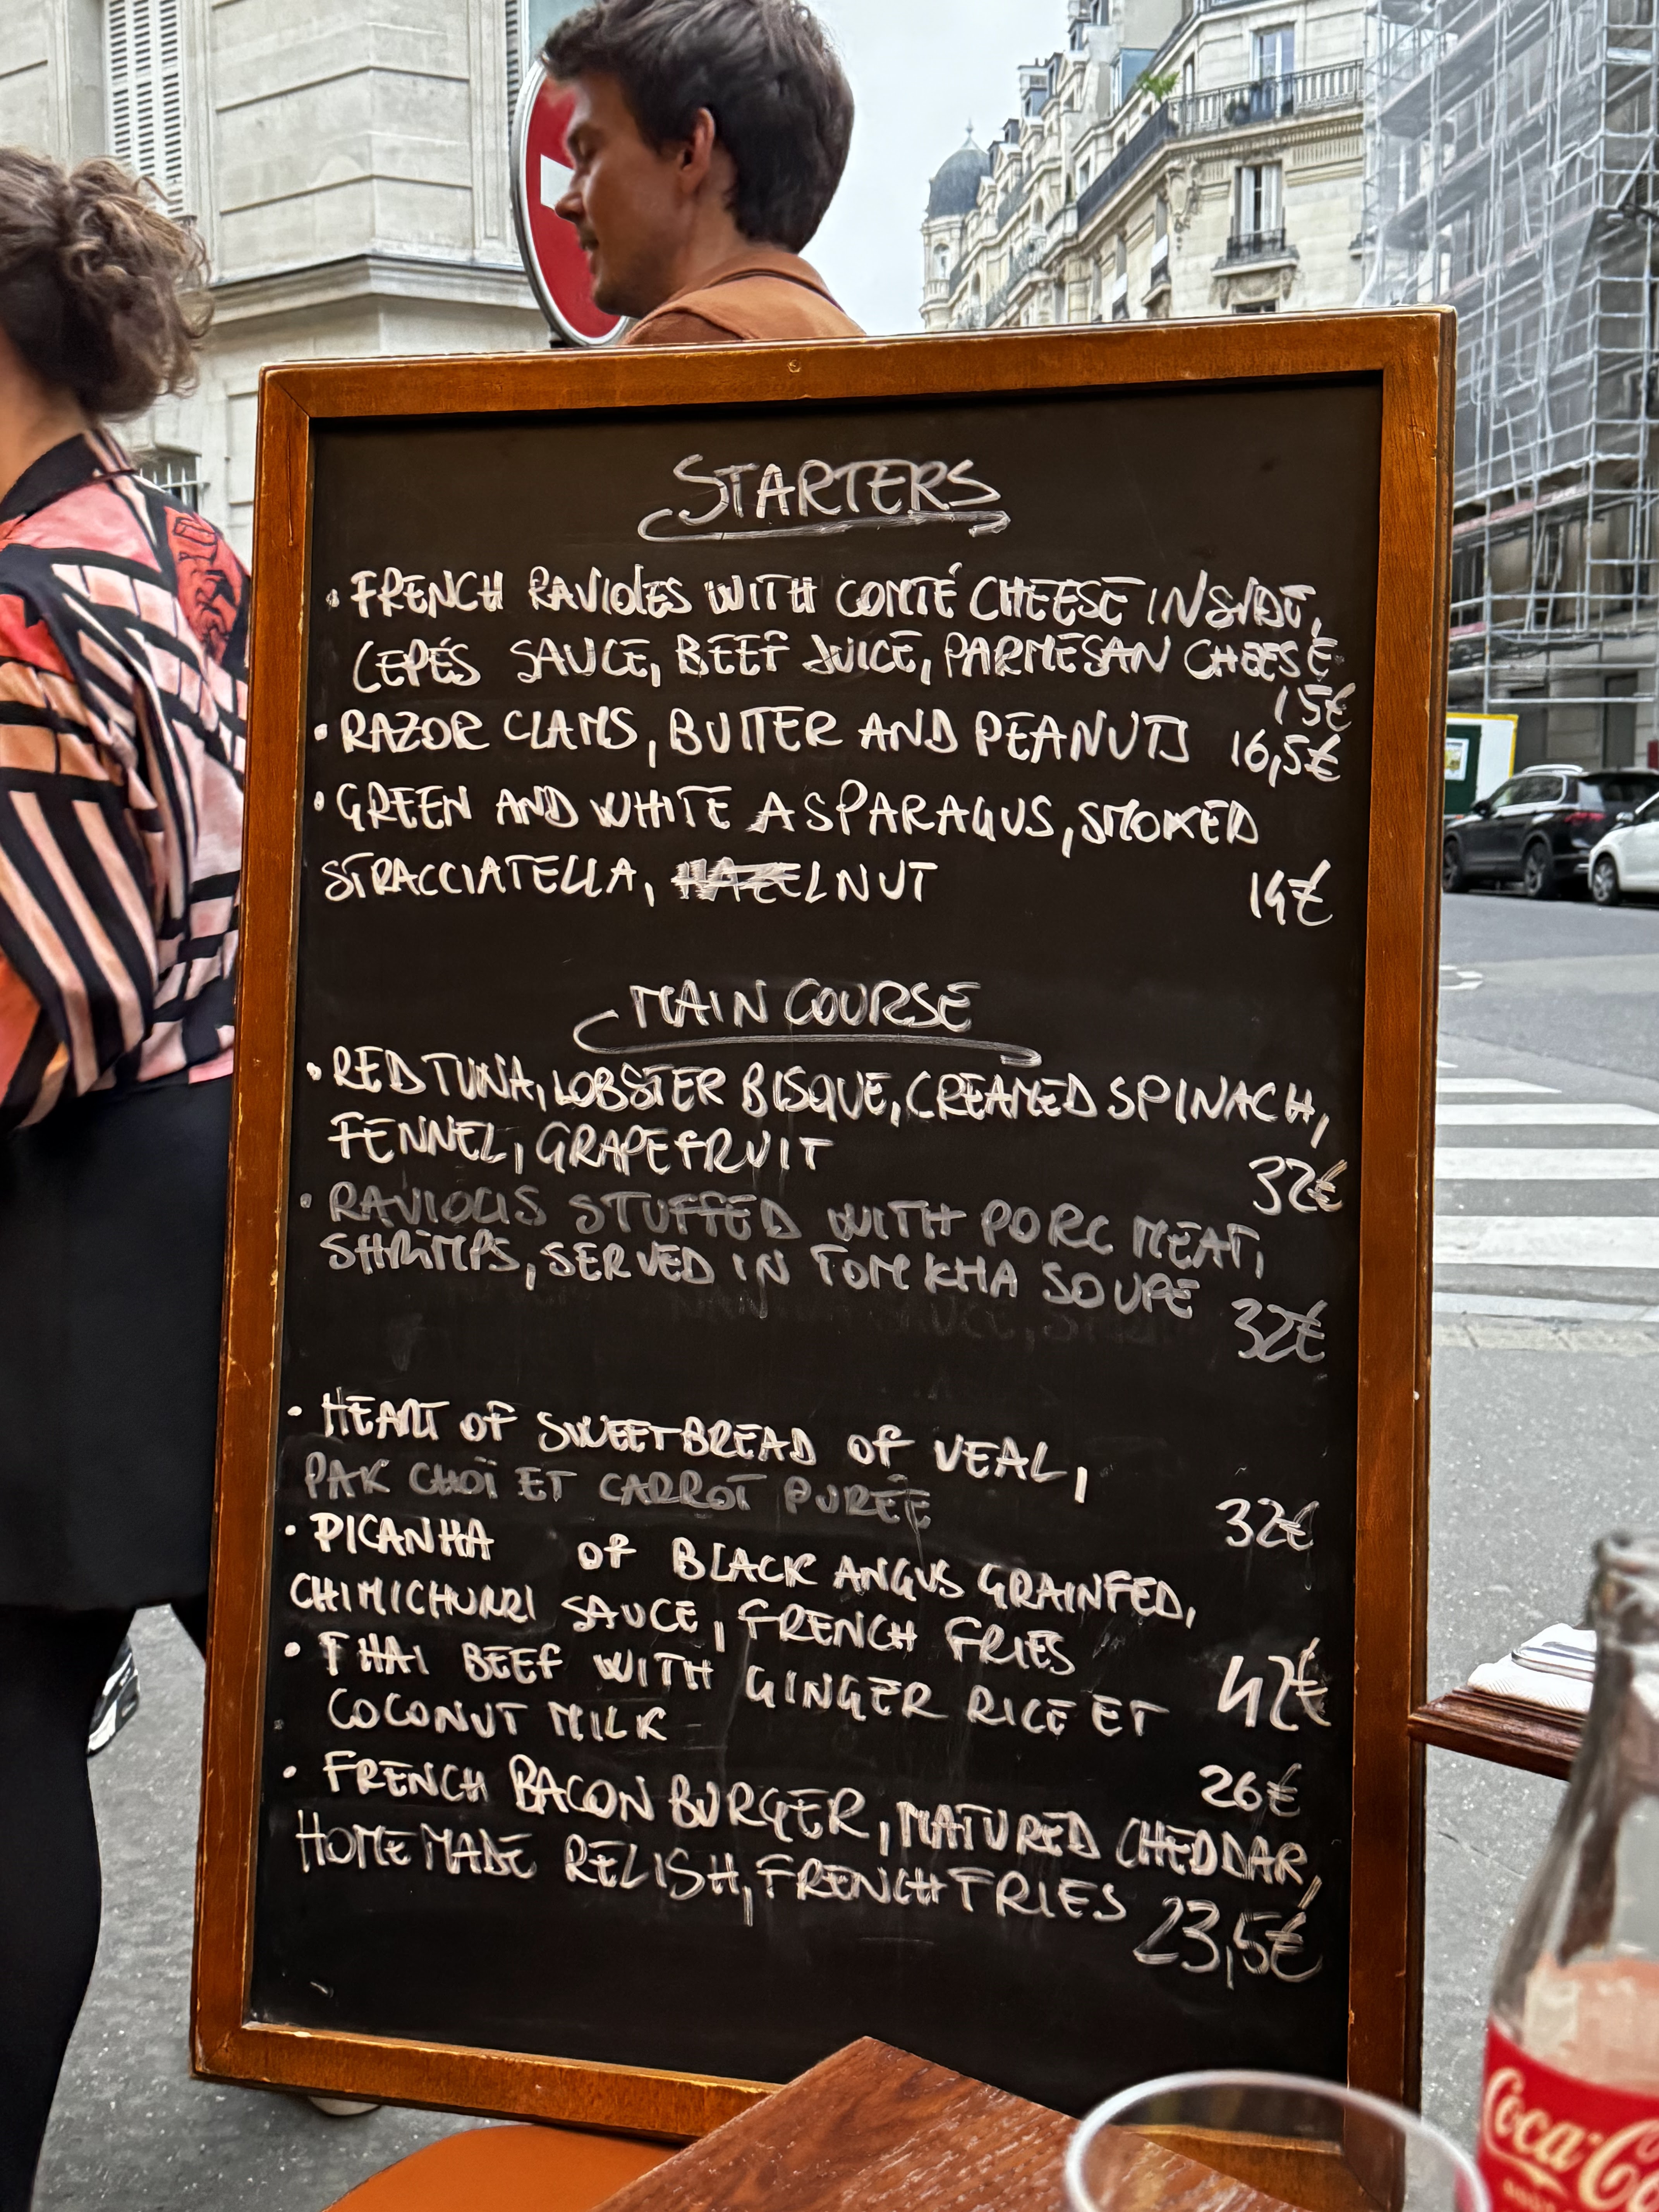 STARTERS
• FRENCH RAVIOLES WITH COMTÉ CHEESE INSIDE,
CEPÉS SAUCE, BEEF JUICE, PARMESAN CHEESE
15€
• RAZOR CLAMS, BUTTER AND PEANUTS 16,5€
• GREEN AND WHITE ASPARAGUS, SMOKED
STRACCIATELLA, HAZELNUT 14€
MAIN COURSE
• RED TUNA, LOBSTER BISQUE, CREAMED SPINACH,
FENNEL, GRAPEFRUIT 32€
• RAVIOLIS STUFFED WITH PORC MEAT,
SHRIMPS, SERVED IN TOM KHA SOUPE
32€
• HEART OF SWEETBREAD OF VEAL,
PAK CHOÏ ET CARROT PURÉE 32€
• PICANHA OF BLACK ANGUS GRAINFED,
CHIMICHURRI SAUCE, FRENCH FRIES 42€
• THAI BEEF WITH GINGER RICE ET
COCONUT MILK 26€
• FRENCH BACON BURGER, MATURED CHEDDAR,
HOMEMADE RELISH, FRENCH FRIES 23,5€
Coca-Co